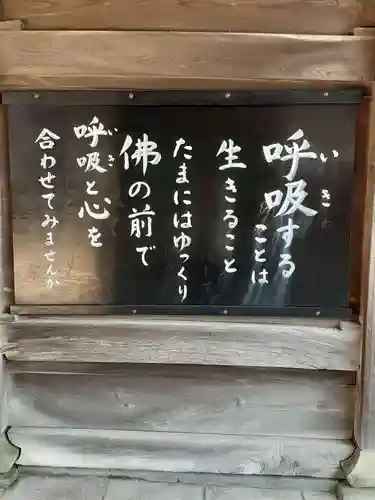 呼吸する
ことは
生きること
たまにはゆっくり
佛の前で
呼吸と心を
合わせてみませんか
いき
いき